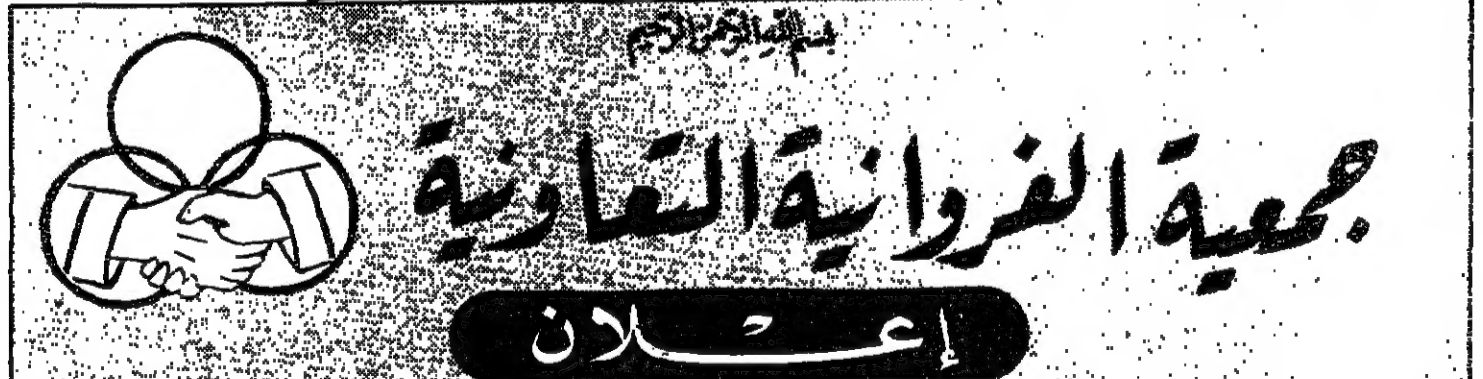 بسم الله الرحمن الرحيم
جمعية الفروانية التعاونية
إعلان